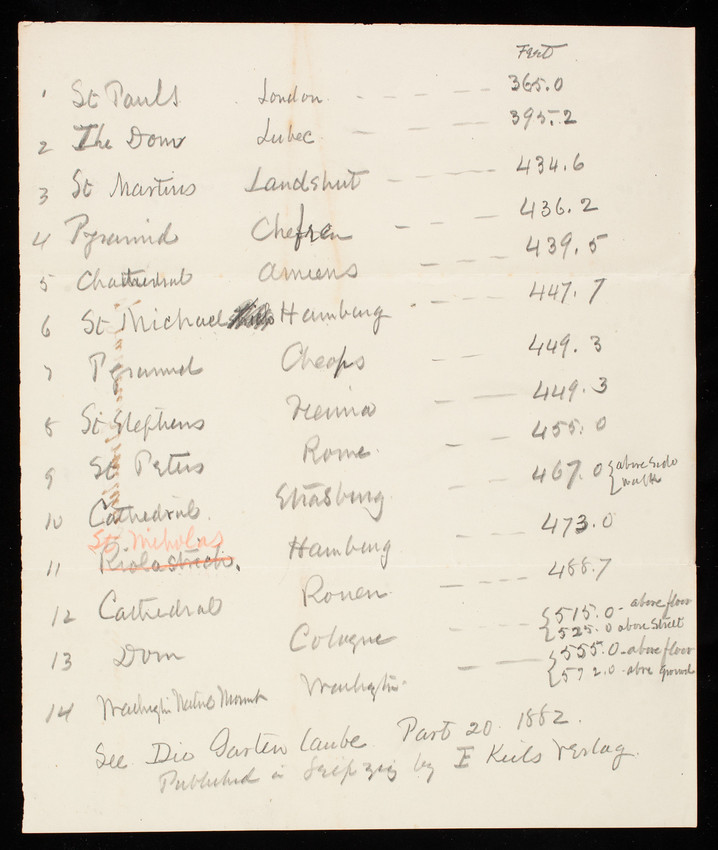 Feet
1 St Pauls London - - - - 365.0
2 The Dom Lubec - - - 395.2
3 St Martins Landshut - - - 434.6
4 Pyramid Chefren - - - 436.2
5 Chathedral Amiens - - - 439.5
6 St Michael Hamburg - - - 447.7
7 Pyramid Cheops - - 449.3
8 St Stephens Vienna - - - 449.3
9 St Peters Rome - - 455.0
10 Cathedral Strasburg - - 467.0 { above side walk
St. Nicholas
11 Hamburg - - - 473.0
12 Cathedral Rouen - - - - 488.7
13 Dom Cologne - - - { 515.0 - above floor
{ 525.0 above Street
14 Washington Natnl Monmt Washington - - - { 555.0 - above floor
{ 572.0 - above ground
See Die Garten laube Part 20. 1882.
Published in Leipzig by E Keils Verlag.